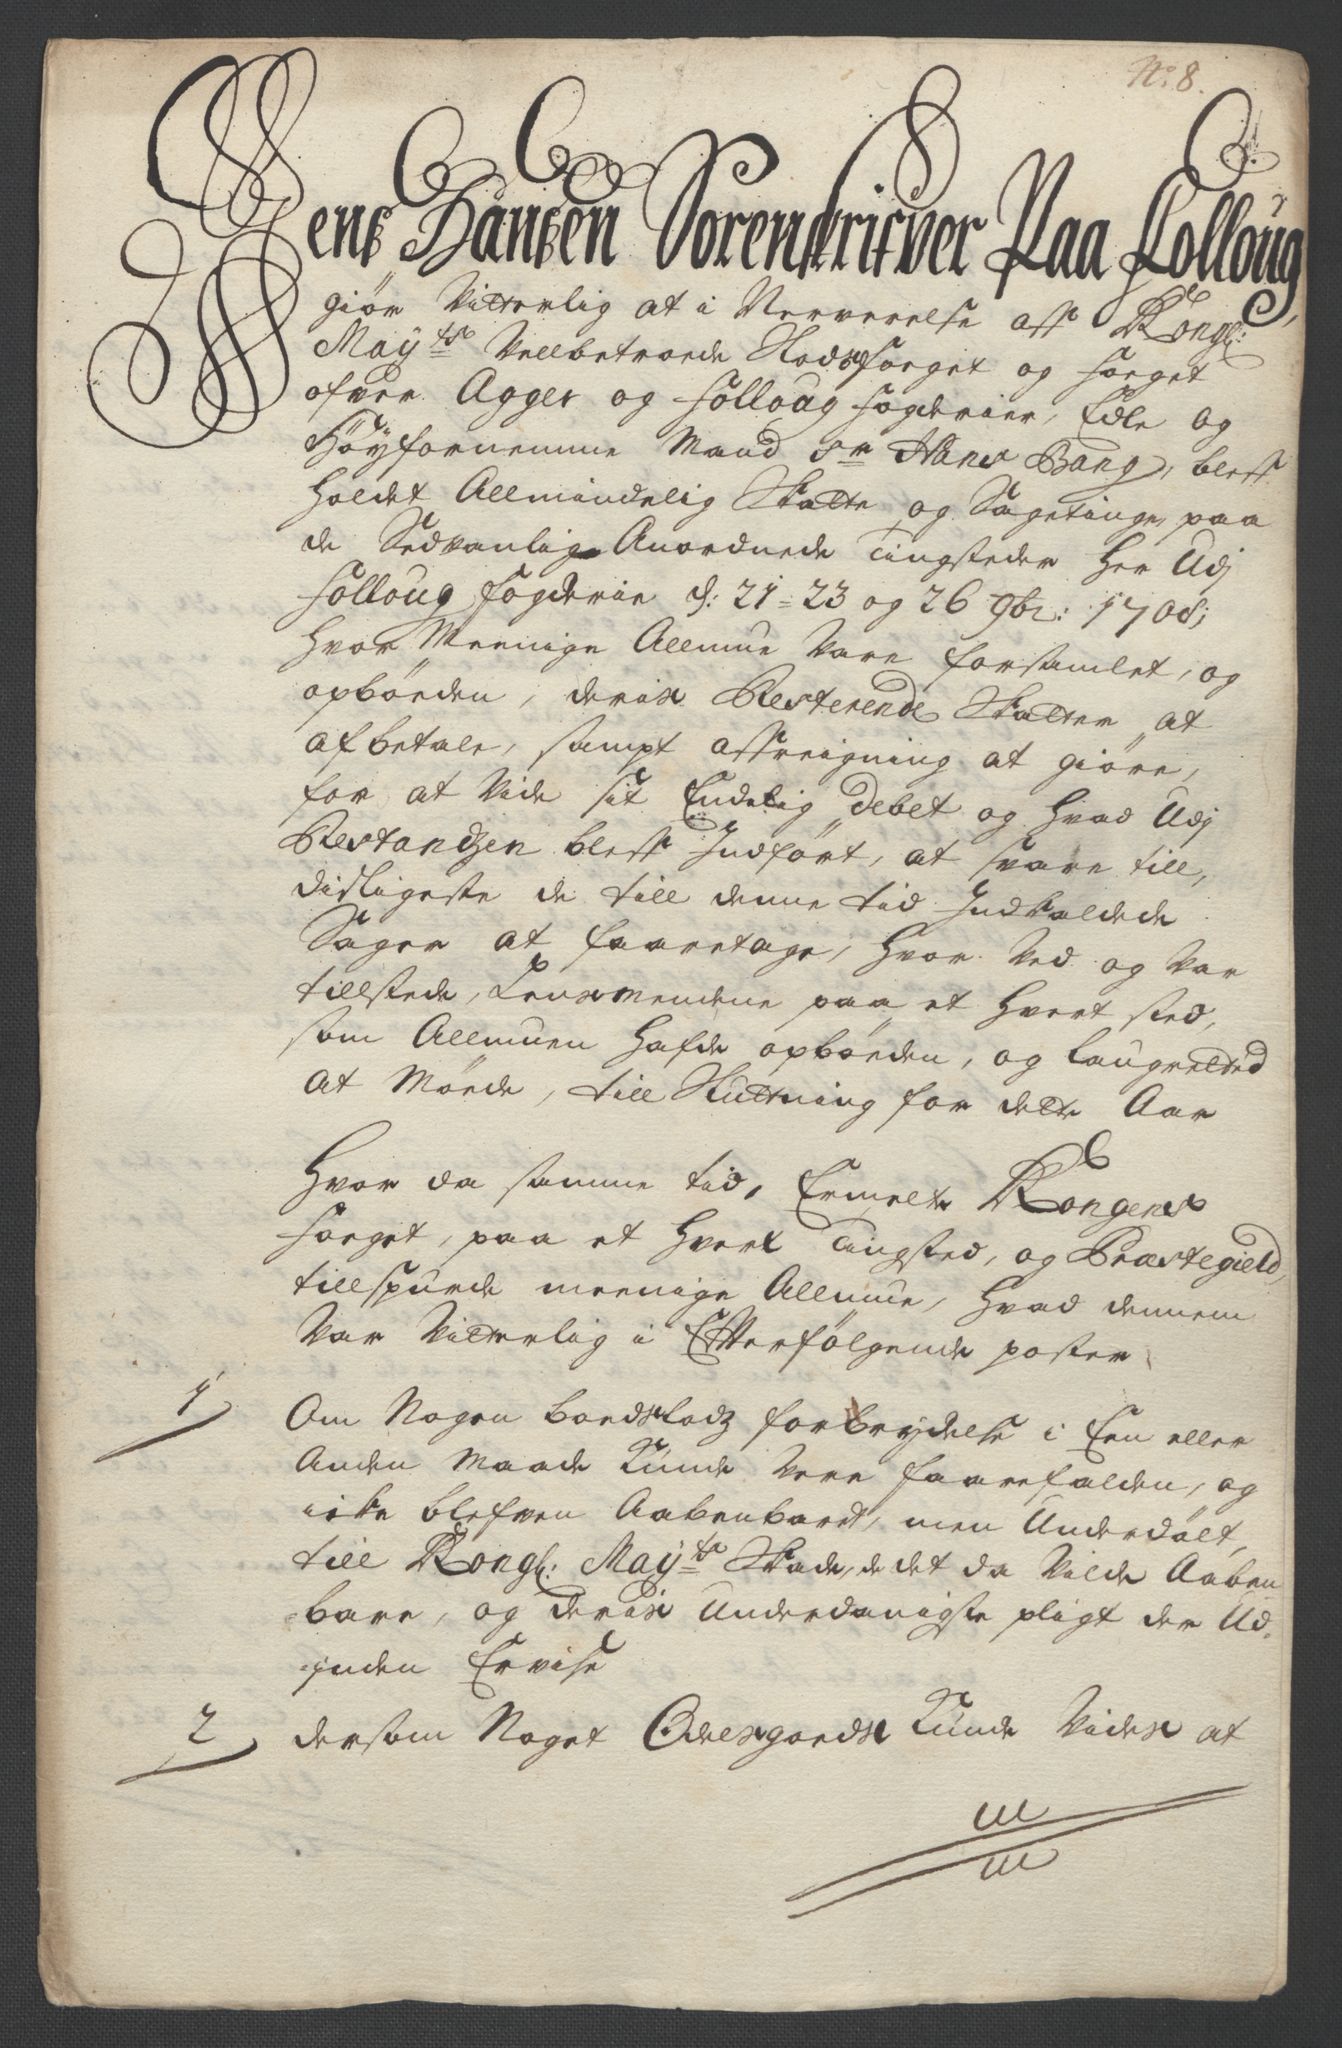 No: 8.
Jens Hansen Sorenskrifver Paa Folloug,
giör Vitterlig at i Nerverelse aff Kongl:
May:ts Vellbetroede Stadsfoeget og foeget
ofver Agger og Folloug fogderier, Edle og
Höyfornemme Mand Sr Hans Bang, bleff
holdet Allmindelig Skatte og Sageting, paa
de Sedvanlig Anordnede Tingsteder her Udj
Folloug fogderie d: 21 = 23 og 26 9br: 1708;
hvor Meenige Allmue Vare forsamlet, og
opböeden, deris Resterende Skatter at
afbetale, sampt affreigning at giöre,
for at Vide sit Endelig debet og hvad Udj
Restandzen bleff Indfört, at svare till,
disligeste de till denne tid Indkaldede
Sager at faaretage, hvor Ved og Var
tillstede, Lensmendene paa et hvert sted,
som Allmuen hafde opböeden, og laugretted
at Möede, till Sluttning for dette Aar
Hvor da samme tid, Ermelte Kongens
foeget, paa et hvert Tingsted, og Præstegield,
tillspurde meenige Allmue, hvad dennem
Var Vitterlig i Efterfölgende poster
1 Om Nogen boedslodz forbrydelse i Een eller
Anden Maade Kunde Vere faarefalden, og
icke blefven Aabenbaret, men Underdölt,
till Kongl: May:ts Skade, de det da Vilde Aaben
bare, og deris Underdanigste pligt der Ud-
inden Ervise
2 dersom Noget Odelsgoeds Kunde Vides at